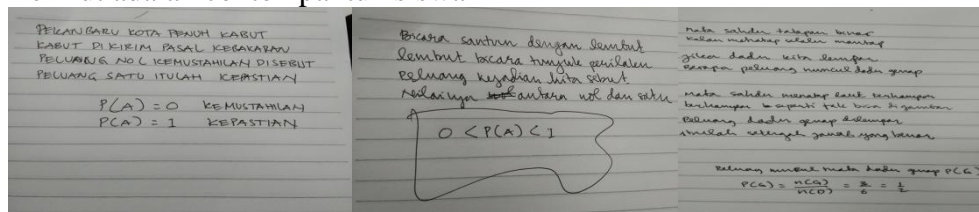 PEKANBARU KOTA PENUH KABUT
KABUT DI KIRIM PASAL KEBAKARAN
PELUANG NOL KEMUSTAHILAN DISEBUT
PELUANG SATU ITULAH KEPASTIAN
P(A) = 0 KEMUSTAHILAN
P(A) = 1 KEPASTIAN
Bicara santun dengan lembut
lembut bicara tunjuk perilaku
Peluang kejadian kita sebut
Nilainya antara nol dan satu
0 < P(A) < 1
mata sahdu tatapan binar
kalau menatap selalu mantap
jika dadu kita lempar
berapa peluang muncul dadu genap
mata sahdu menatap laut terhampar
terhampar seperti tak bisa digambar
Peluang dadu genap dilempar
setengah jawab yang benar
Peluang muncul mata dadu genap P(G)
P(G) = n(G)/n(D) = 3/6 = 1/2